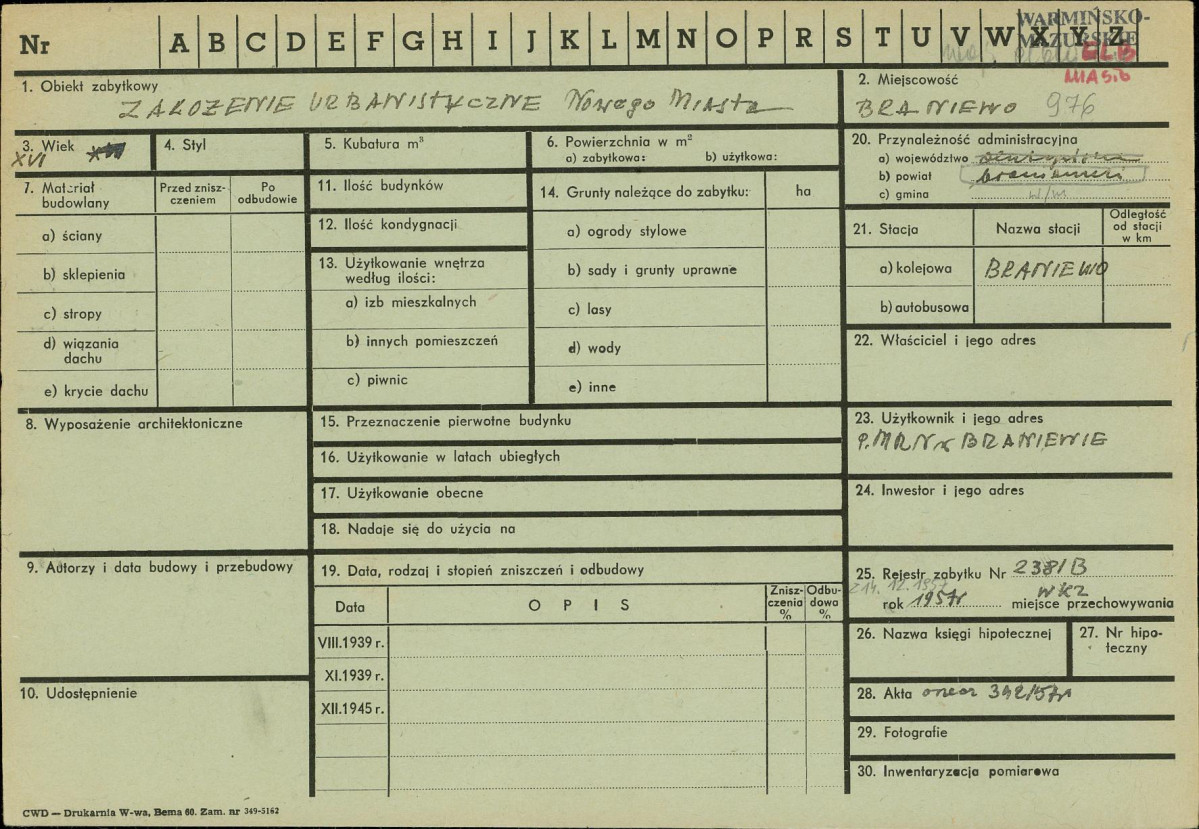 Nr A B C D E F G H I J K L M N O P R S T U V W X Y Z
WARMIŃSKO-
MAZURSKIE
ELB
MIASTO
1. Obiekt zabytkowy
ZAŁOŻENIE URBANISTYCZNE Nowego Miasta
2. Miejscowość
BRANIEWO 976
3. Wiek
XVI
4. Styl
5. Kubatura m³
6. Powierzchnia w m²
a) zabytkowa: b) użytkowa:
20. Przynależność administracyjna
a) województwo olsztyńskie
b) powiat braniewski
c) gmina
7. Materiał budowlany
Przed znisz-
czeniem
Po
odbudowie
a) ściany
b) sklepienia
c) stropy
d) wiązania
dachu
e) krycie dachu
11. Ilość budynków
12. Ilość kondygnacji
13. Użytkowanie wnętrza
według ilości:
a) izb mieszkalnych
b) innych pomieszczeń
c) piwnic
14. Grunty należące do zabytku: ha
a) ogrody stylowe
b) sady i grunty uprawne
c) lasy
d) wody
e) inne
21. Stacja
Nazwa stacji
Odległość
od stacji
w km
a) kolejowa BRANIEWO
b) autobusowa
22. Właściciel i jego adres
8. Wyposażenie architektoniczne
15. Przeznaczenie pierwotne budynku
16. Użytkowanie w latach ubiegłych
17. Użytkowanie obecne
18. Nadaje się do użycia na
23. Użytkownik i jego adres
P.MRN w BRANIEWIE
24. Inwestor i jego adres
9. Autorzy i data budowy i przebudowy
10. Udostępnienie
19. Data, rodzaj i stopień zniszczeń i odbudowy
Data
OPIS
Znisz-
czenia
%
Odbu-
dowa
%
VIII.1939 r.
XI.1939 r.
XII.1945 r.
25. Rejestr zabytku Nr 238/B
z 14.12.1957
WKZ
rok 1957r miejsce przechowywania
26. Nazwa księgi hipotecznej
27. Nr hipo-
teczny
28. Akta 342/57r
29. Fotografie
30. Inwentaryzacja pomiarowa
CWD — Drukarnia W-wa, Bema 60. Zam. nr 349-5162